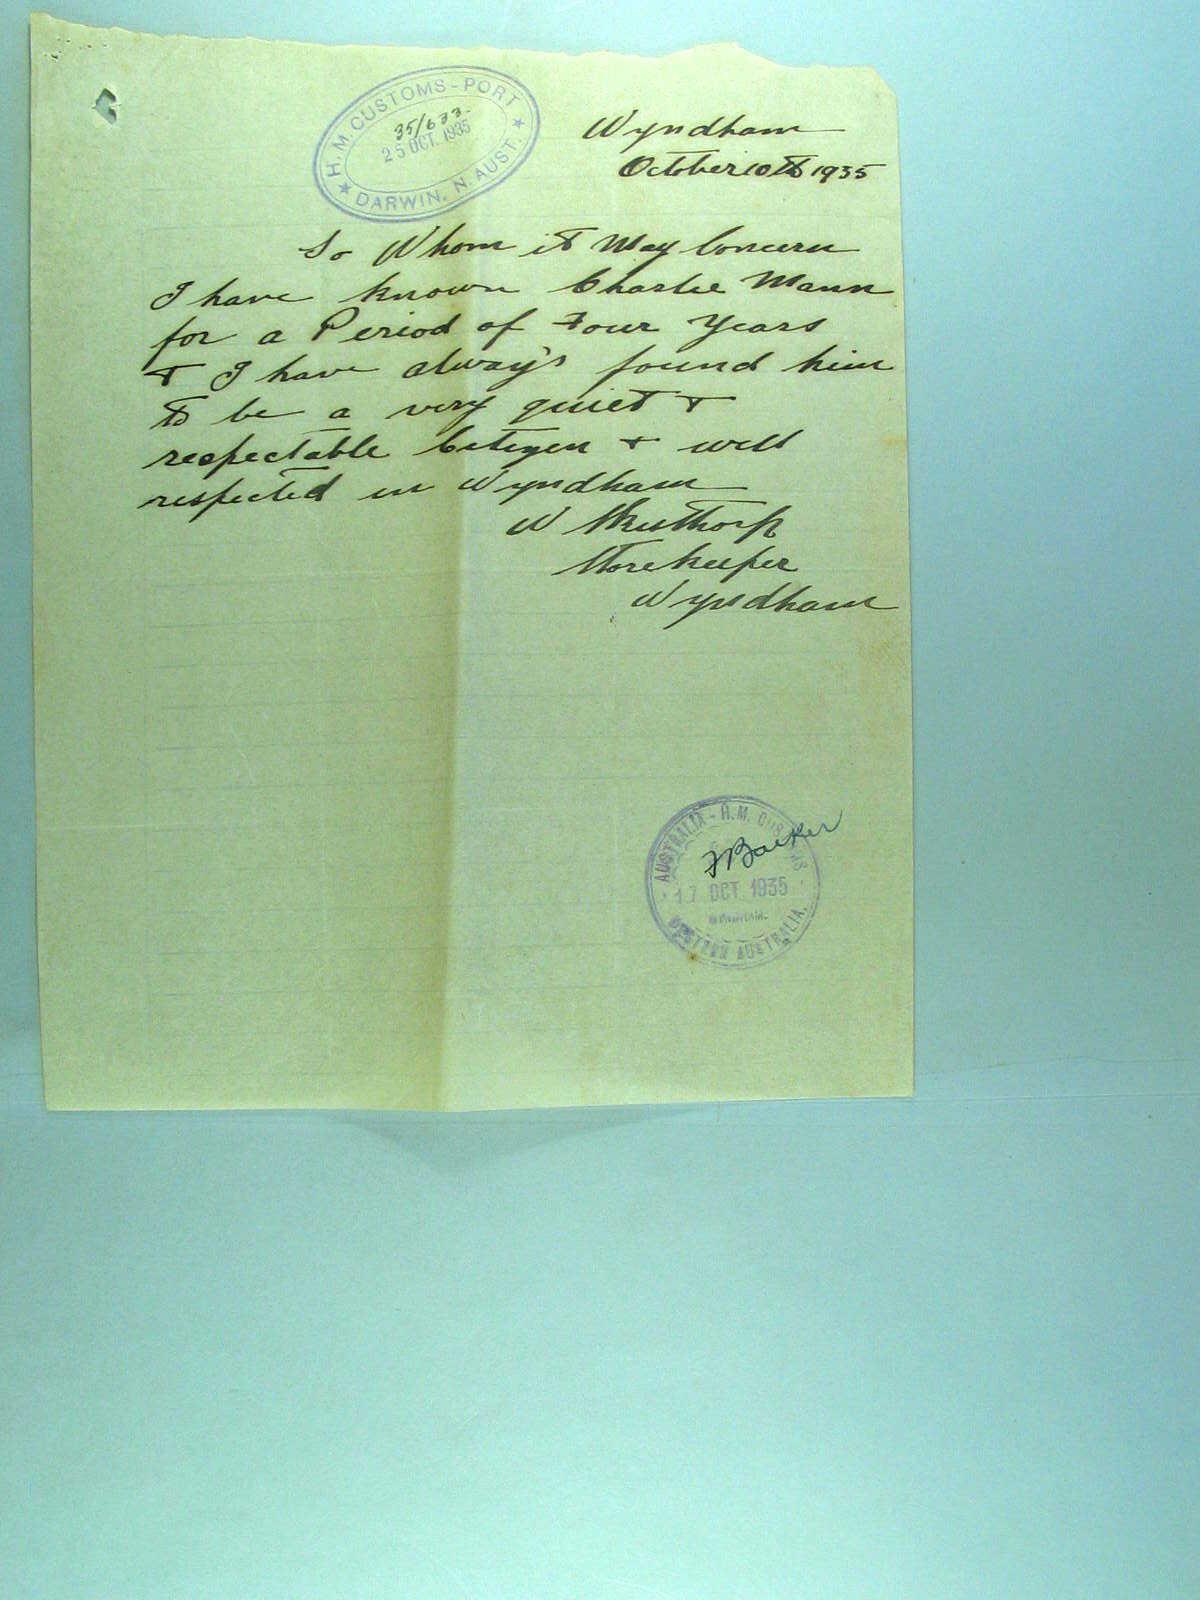 H. M. CUSTOMS - PORT
35/633
25 OCT. 1935
DARWIN, N. AUST.
Wyndham
October 10th 1935
To Whom it May Concern
I have known Charlie Mann
for a Period of Four Years
& I have always found him
to be a very quiet &
respectable Citizen & well
respected in Wyndham
W
Storekeeper
Wyndham
AUSTRALIA - H.M. CUSTOMS
F Barker
17 OCT 1935
WYNDHAM.
WESTERN AUSTRALIA.